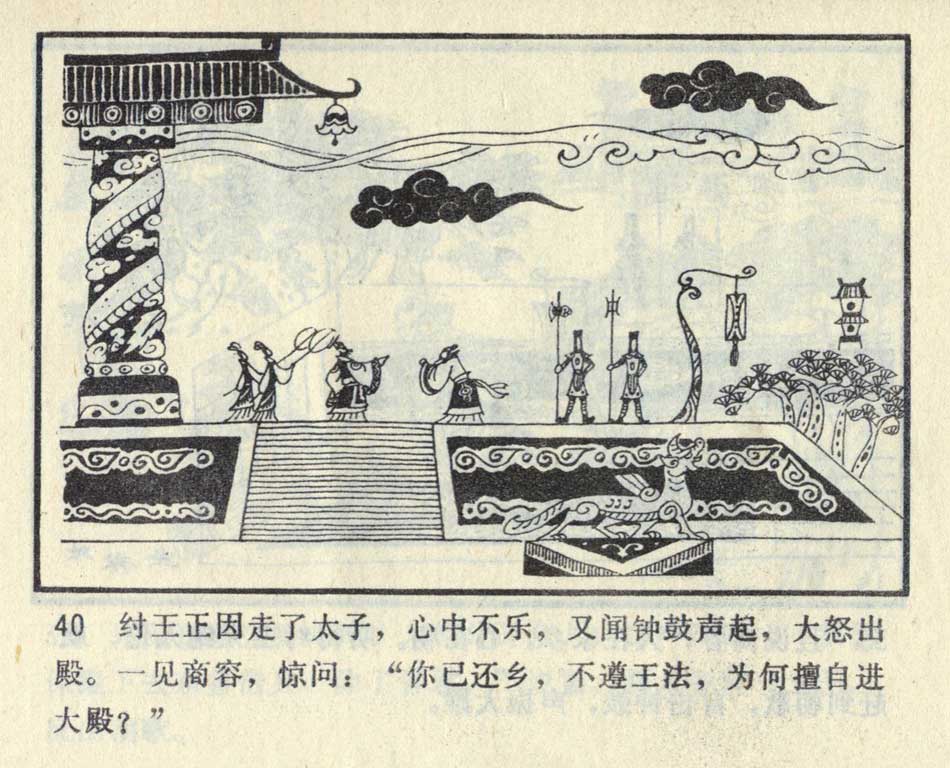 40 纣王正因走了太子，心中不乐，又闻钟鼓声起，大怒出
殿。一见商容，惊问：“你已还乡，不遵王法，为何擅自进
大殿？”